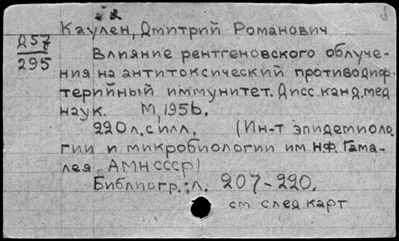 Каулен, Дмитрий Романович
257
295
Влияние рентгеновского облуче-
ния на антитоксический противодиф-
терийный иммунитет. Дисс. канд. мед
наук. М, 1956.
220 л. с илл. (Ин-т эпидемиоло-
гии и микробиологии им. Н.Ф. Гама-
лея, АМН СССР)
Библиогр.: л. 207-220.
см. след. карт